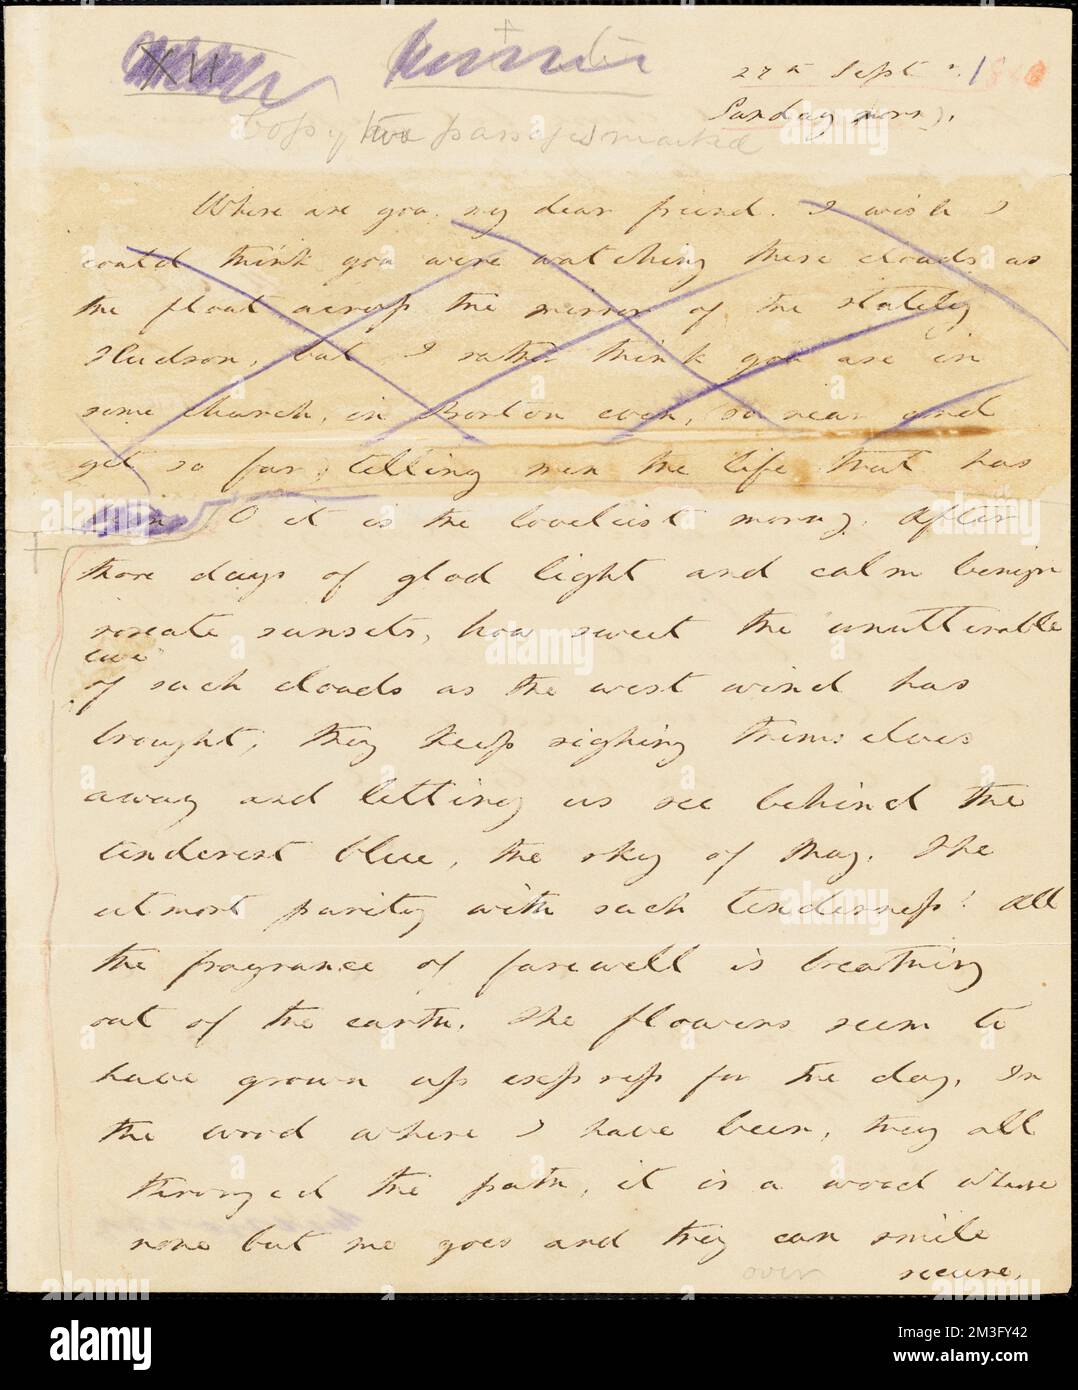 XII
27th Sept. 1840
Sunday morng.
Copy two passages marked
Where are you, my dear friend. I wish I
could think you were watching these clouds as
the float across the mirror of the stately
Hudson, but I rather think you are in
some church, in Boston even, so near and
yet so far, telling men the life that has
O it is the loveliest morng. After
those days of glad light and calm benign
roseate sunsets, how sweet the unutterable
love
of such clouds as the west wind has
brought, they keep sighing themselves
away and letting us see behind the
tenderest blue, the sky of May. The
utmost purity with such tenderness! All
the fragrance of farewell is breathing
out of the earth. The flowers seem to
have grown up express for the day. In
the wood where I have been, they all
thronged the path, it is a wood where
none but me goes and they can smile
secure.
over
alamy
alamy
Image ID: 2M3FY42
www.alamy.com